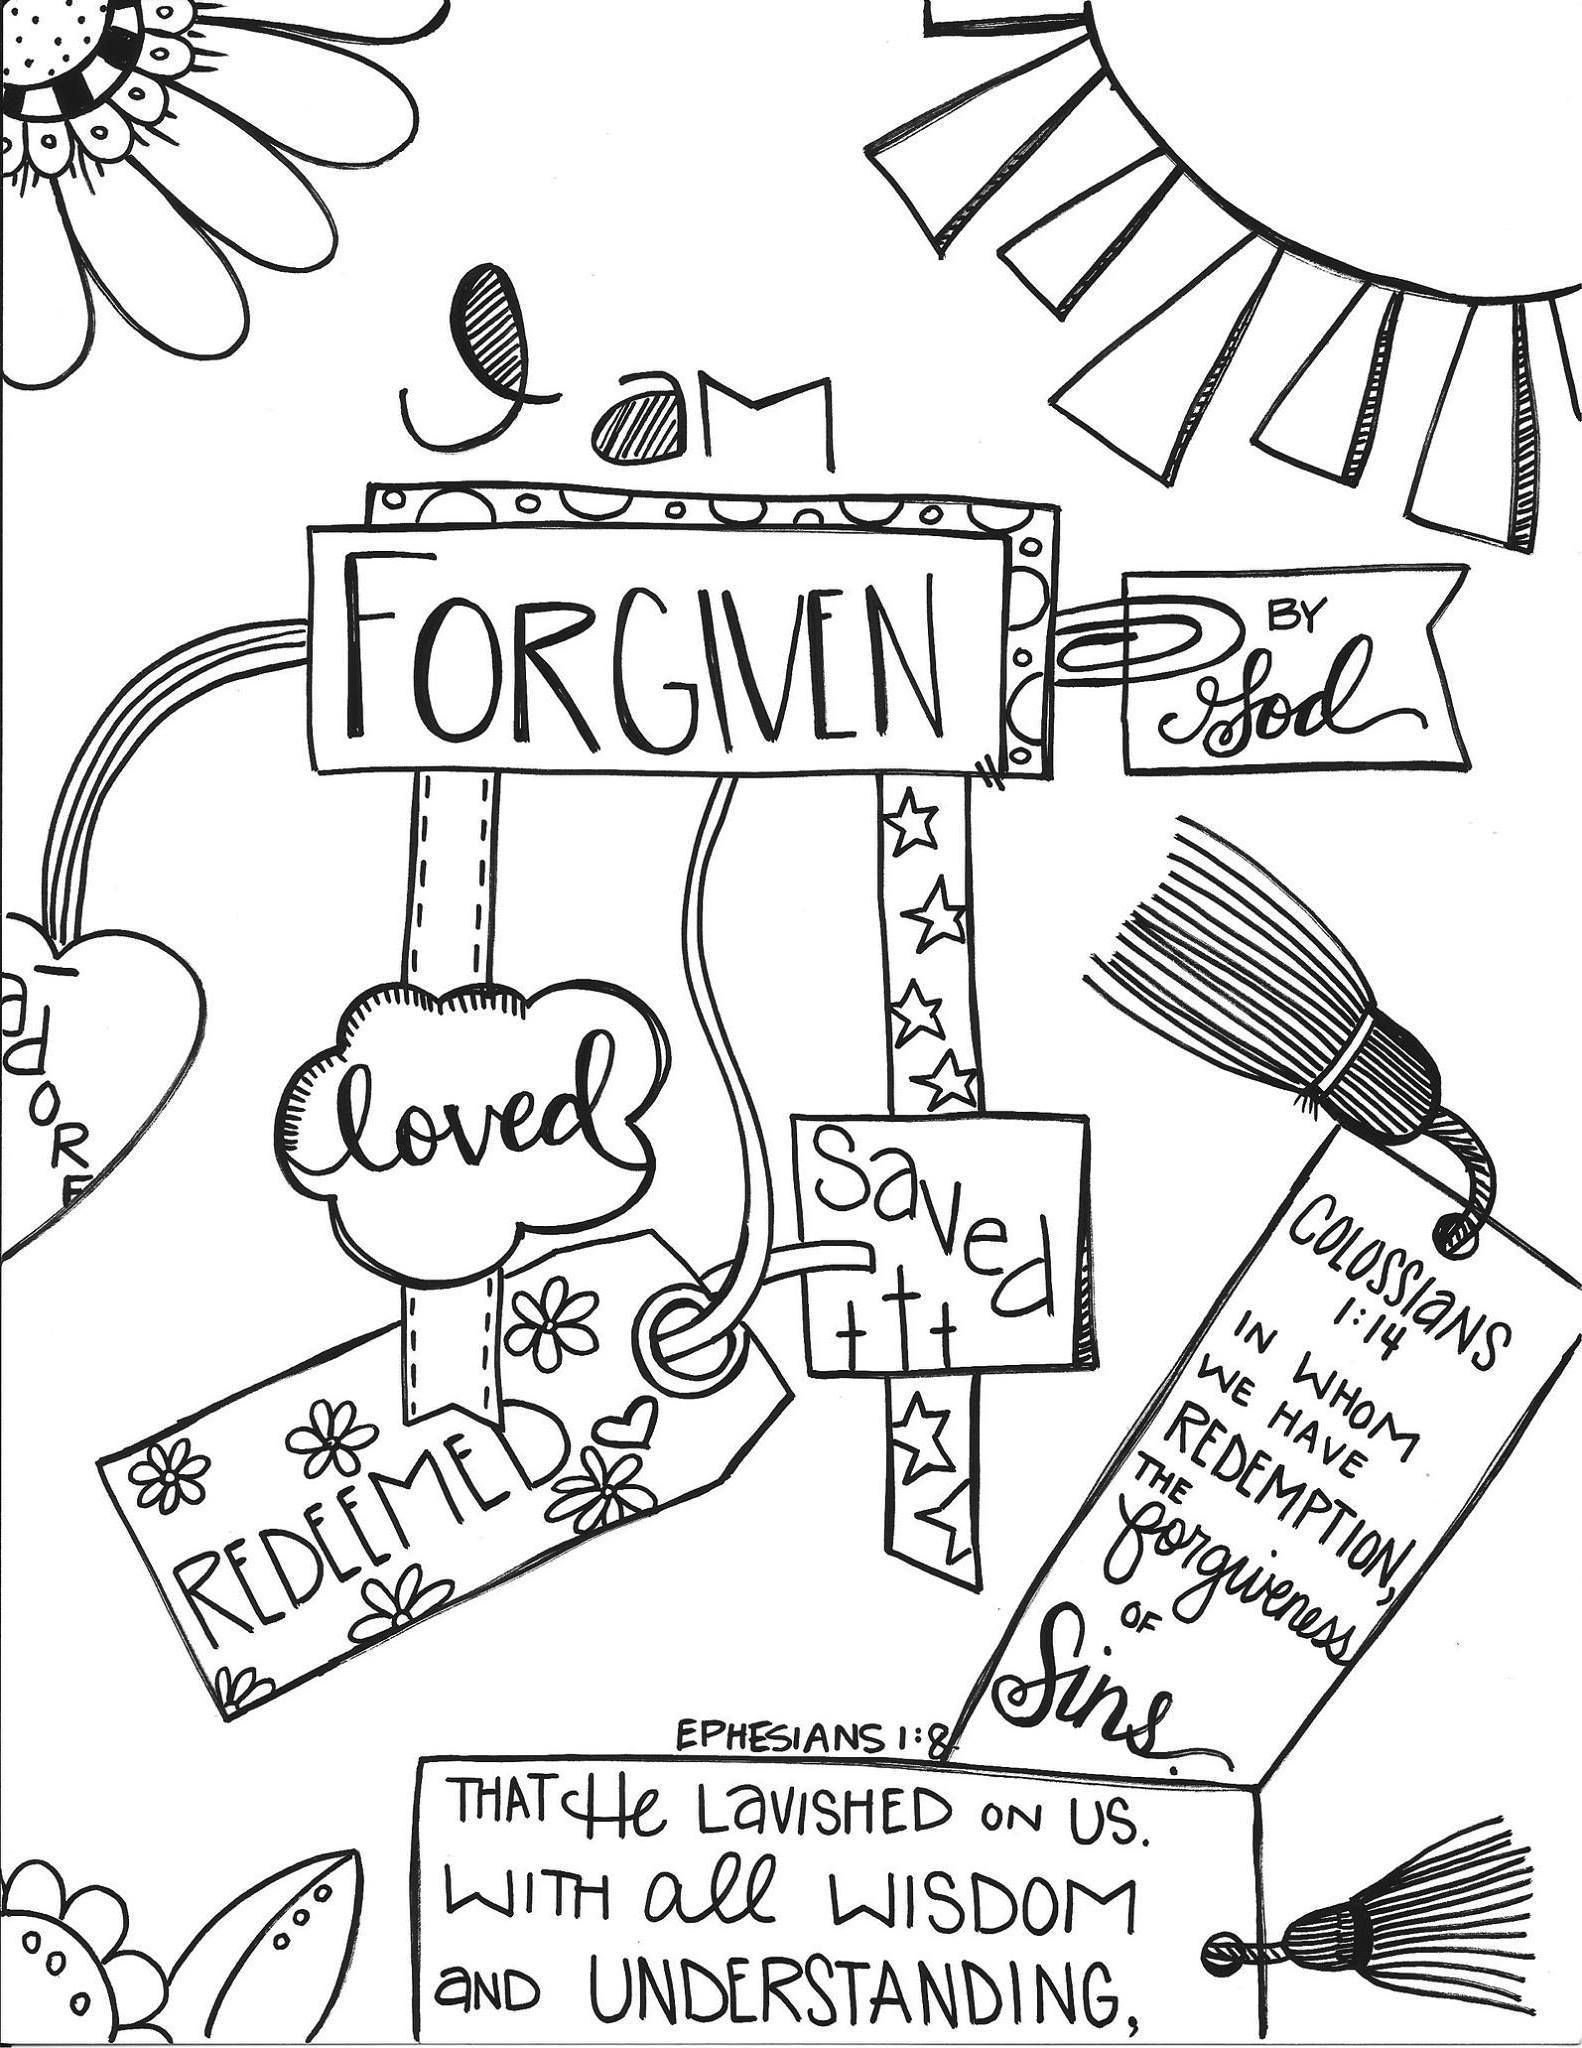 I am
FORGIVEN
BY
God
adORE
loved
saved
REDEEMED
COLOSSIANS
1:14
IN WHOM
WE HAVE
REDEMPTION,
THE
forgiveness
OF
Sins.
EPHESIANS 1:8
THAT He LaVISHED ON US.
WITH all WISDOM
aND UNDERSTANDING,